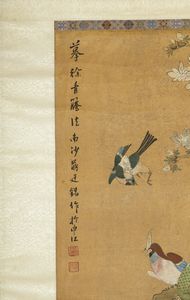 摹徐青藤法南沙蔣廷錫作於申江